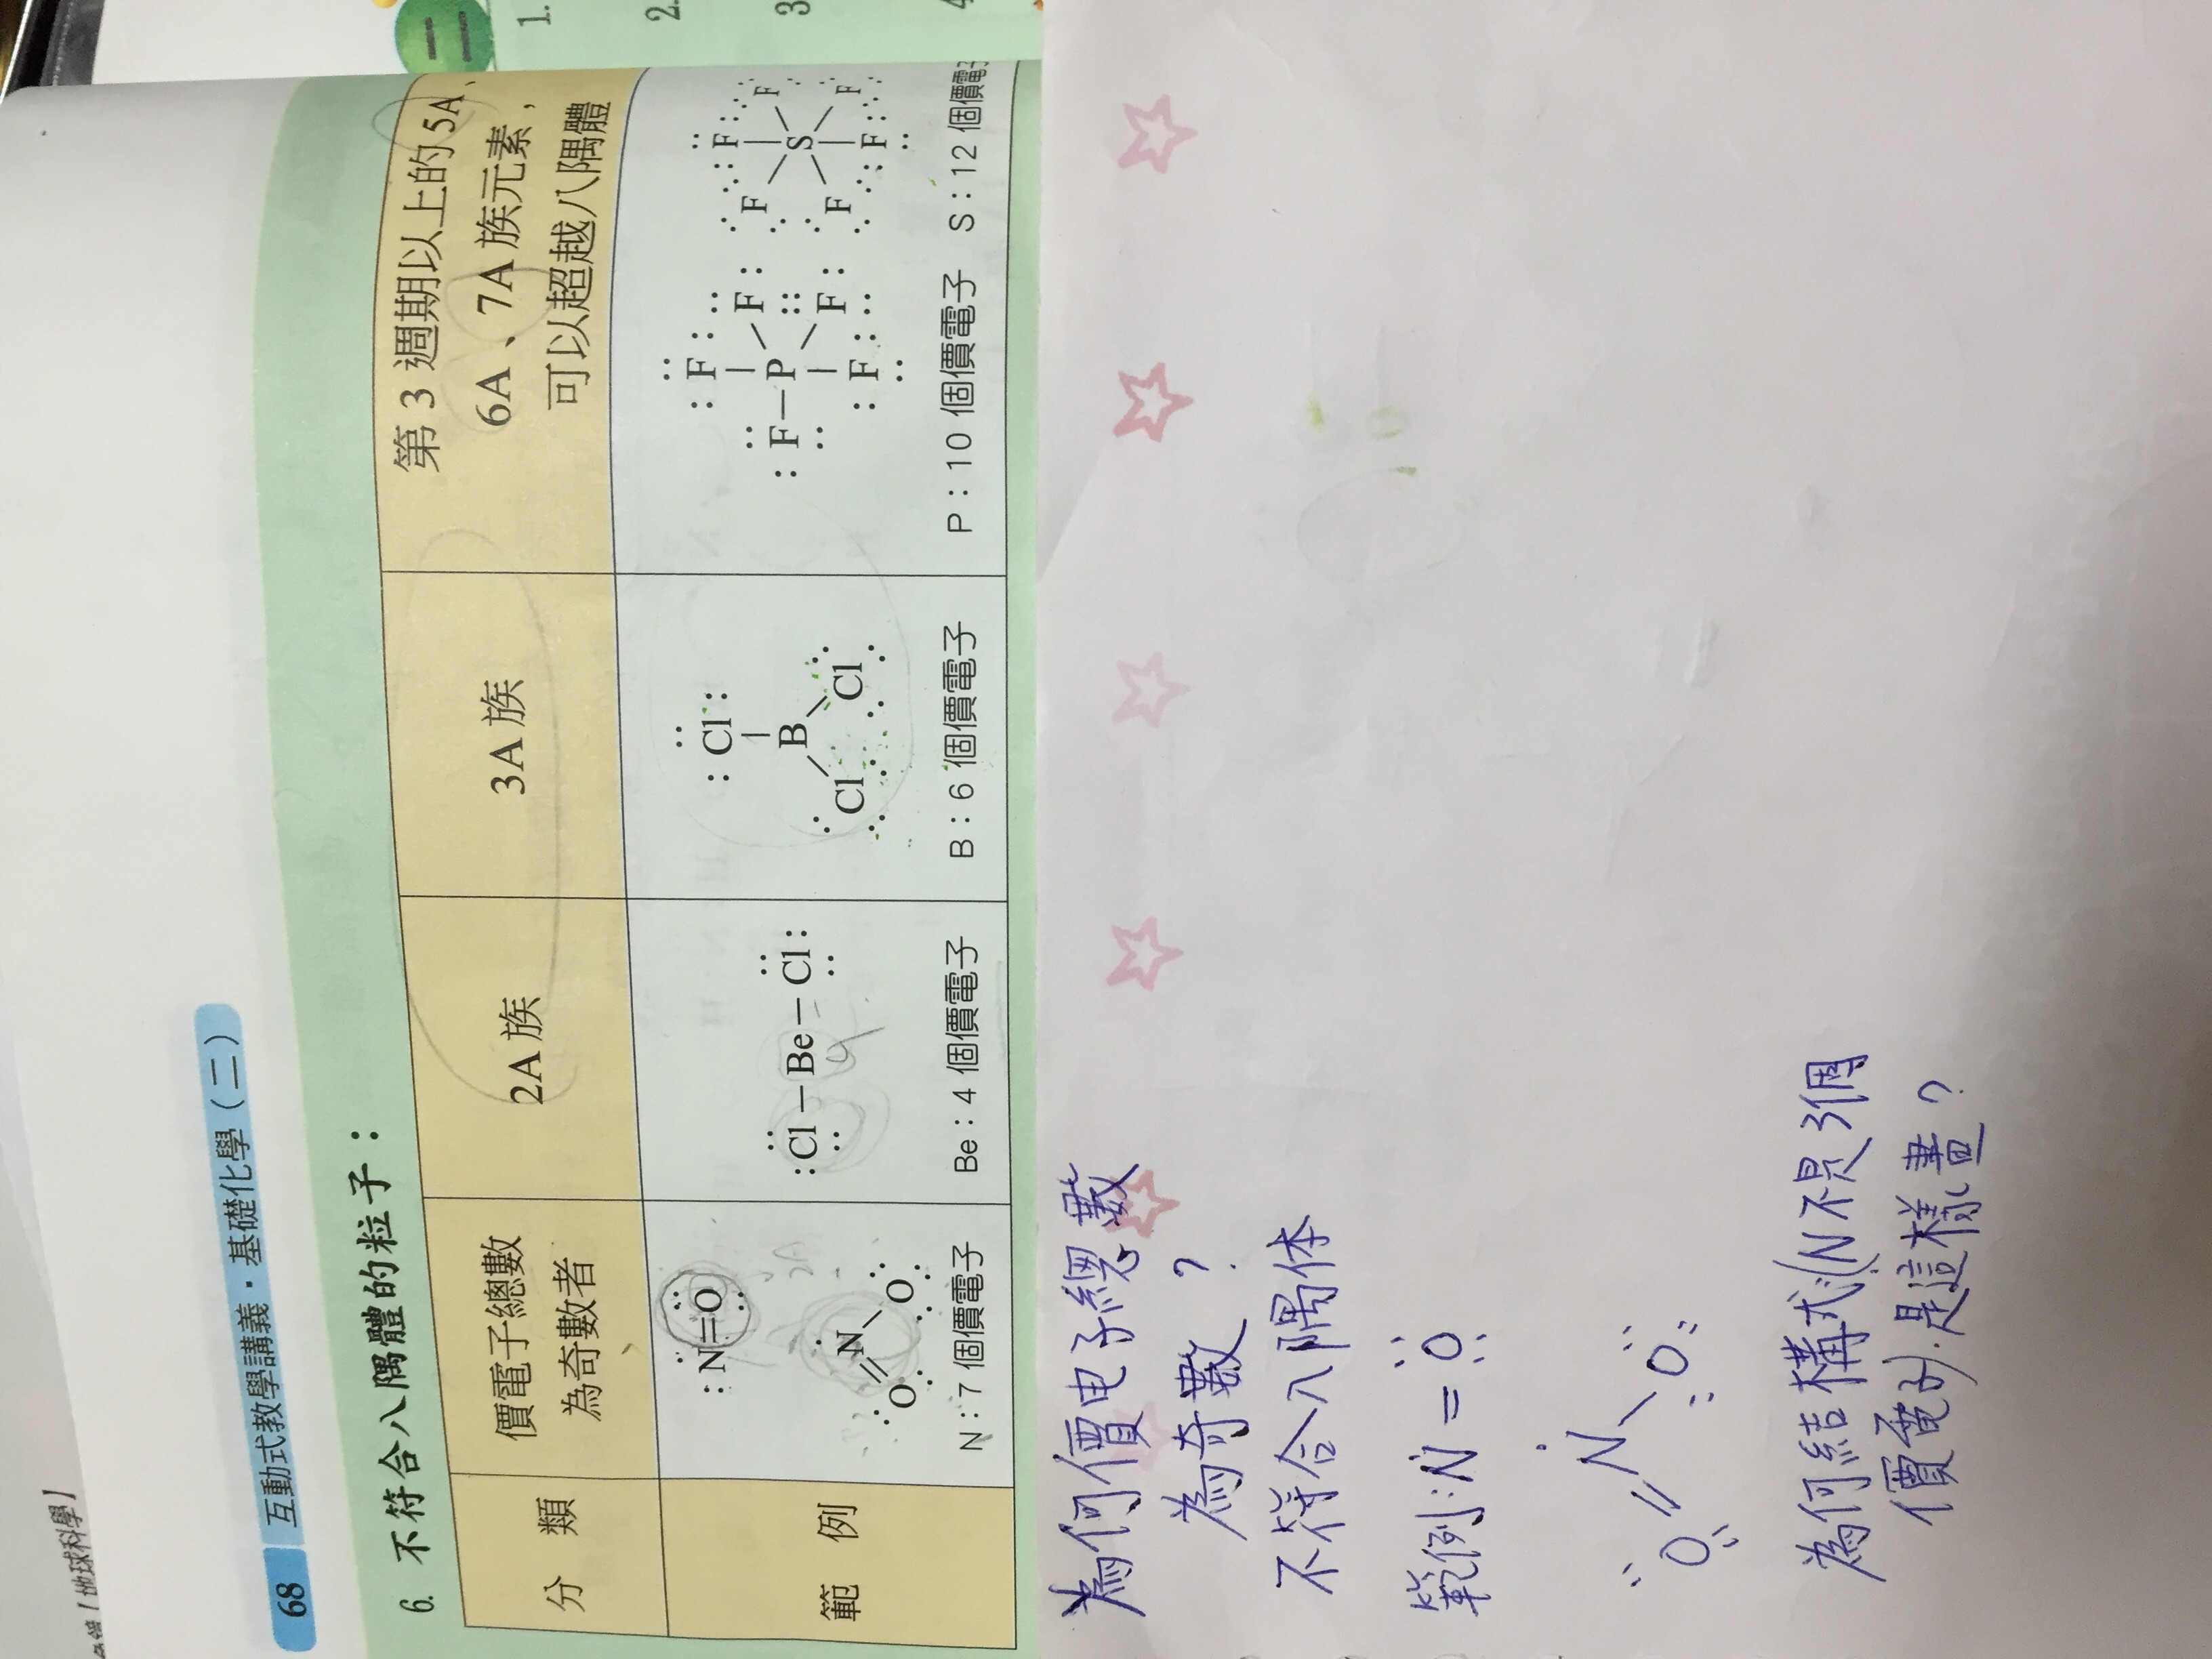 【地球科學】
68 互動式教學講義・基礎化學(二)
6. 不符合八隅體的粒子：
分類
價電子總數
為奇數者
2A 族
3A 族
第 3 週期以上的 5A、
6A、7A 族元素，
可以超越八隅體
範例
N=O
O=N-O
N：7 個價電子
Cl-Be-Cl
4
Be：4 個價電子
Cl
B
Cl Cl
B：6 個價電子
F
F-P
F
F
F
P：10 個價電子
F
F F
S
F F
F
S：12 個價電子
二
1.
2.
3
4
為何價电子總數
為奇數？
不符合八隅体
範例:N=O
O=N-O
為何結構式(N不是3個
價電子)是這樣畫？